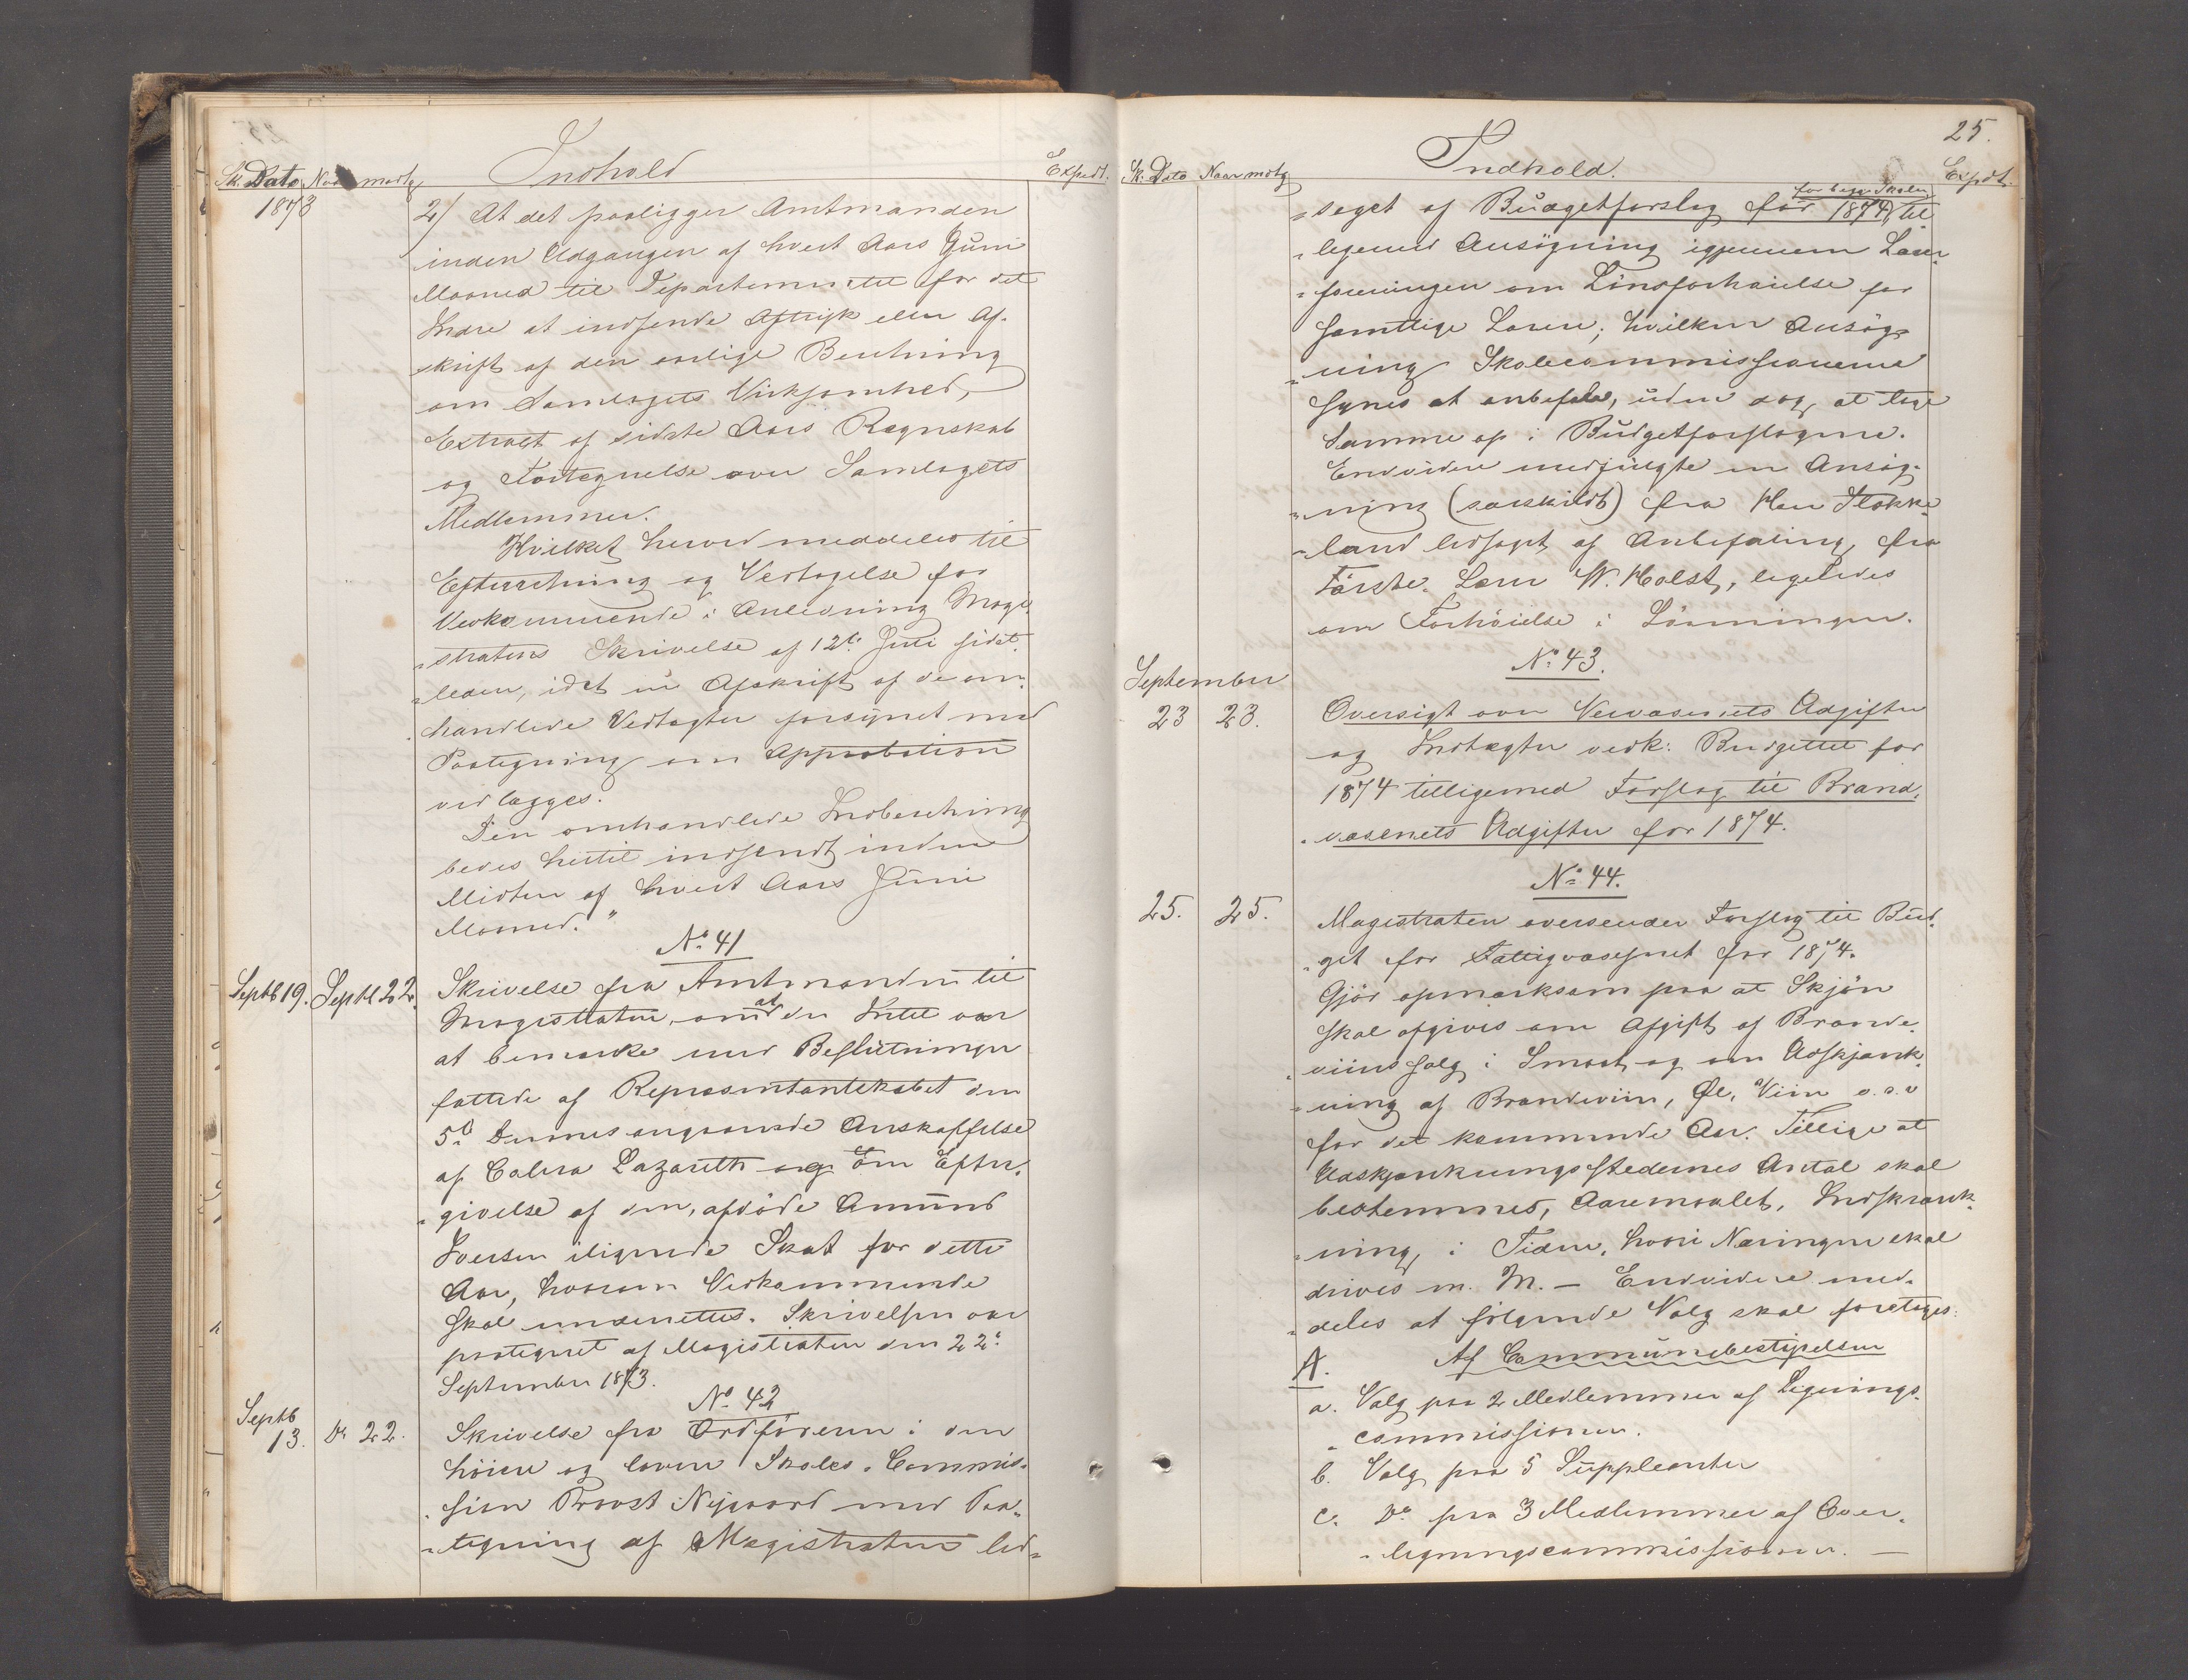 Sk. Dato Naar modtg Indhold Expedt.
1873
2/ At det paaligger Amtmanden
inden Udgangen af hvert Aars Juni
Maaned til Departementet for det
Indre at indsende Aftryk eller Af-
skrift af den aarlige Beretning
om Samlagets Virksomhed,
Extract af sidste Aars Regnskab
og Fortegnelse over Samlagets
Medlemmer.
Hvilket herved meddeles til
Efterretning og Vedtagelse for
Vedkommende i Anledning Magi-
-stratens Skrivelse af 12te Juli sidst-
-leden, idet en Afskrift af de om-
-handlede Vedtægter forsynet med
Paategning om Approbation
vedlægges.
Den omhandlede Indberetning
bedes hertil indsendt inden
Midten af hvert Aars Juni
Maaned."
No 41
Septb 19. Septb 22.
Skrivelse fra Amtmanden til
Magistraten, om at der Intet var
at bemærke med Beslutningen
fattede af Repræsentantskabet den
5te Dennes angaaende Anskaffelse
af Colera Lazareth og om Efter-
-givelse af den, afdøde Amund
Iversen ilignede Skat for dette
Aar, hvorom Vedkommende
skal underrettes. Skrivelsen var
paategnet af Magistraten den 22de
September 1873.
No 42
Septb 13. Do 22.
Skrivelse fra Ordføreren i den
høiere og lavere Skoles-Commis-
-sion Provst Nygaard med Paa-
-tegning af Magistraten led-
25.
Sk. Dato Naar modtg Indhold. Expdt.
for begge Skoler
-saget af Budgetforslag for 1874, til
-ligemed Ansøgning igjennem Lærer-
-foreningen om Lønsforhøielse for
samtlige Lærere; hvilken Ansøg-
-ning Skolecommissionerne
synes at anbefale, uden dog at tage
Samme op i Budgetforslagene.
Endvidere medfulgte en Ansøg-
-ning (særskildt) fra Herr Flokke-
-land ledsaget af Anbefaling fra
Første-Lærer W. Holst, ligeledes
om Forhøielse i Lønningen.
No 43.
September
23 23.
Oversigt over Veivæsenets Udgifter
og Indtægter vedk: Budgettet for
1874 tilligemed Forslag til Brand-
-væsenets Udgifter for 1874.
No 44.
25. 25.
Magistraten oversender Forslag til Bud-
-get for Fattigvæsenet for 1874.
Gjør opmærksom paa at Skjøn
skal afgives om Afgift af Brænde-
-viinssalg i Smaat og om Udskjænk-
-ning af Brændeviin, Øl, Viin o.s.v
for det kommende Aar. Tillige at
Udskjænkningsstedernes Antal skal
bestemmes, Aaremaalet, Indskrænk-
-ning i Tiden, hvori Næringen skal
drives m. M. — Endvidere med-
-deles at følgende Valg skal foretages:
A. Af Communebestyrelsen
a. Valg paa 2 Medlemmer af Lignings-
-commissionen.
b. Valg paa 5 Suppleanter
c. Do paa 3 Medlemmer af Over-
-ligningscommissionen. —